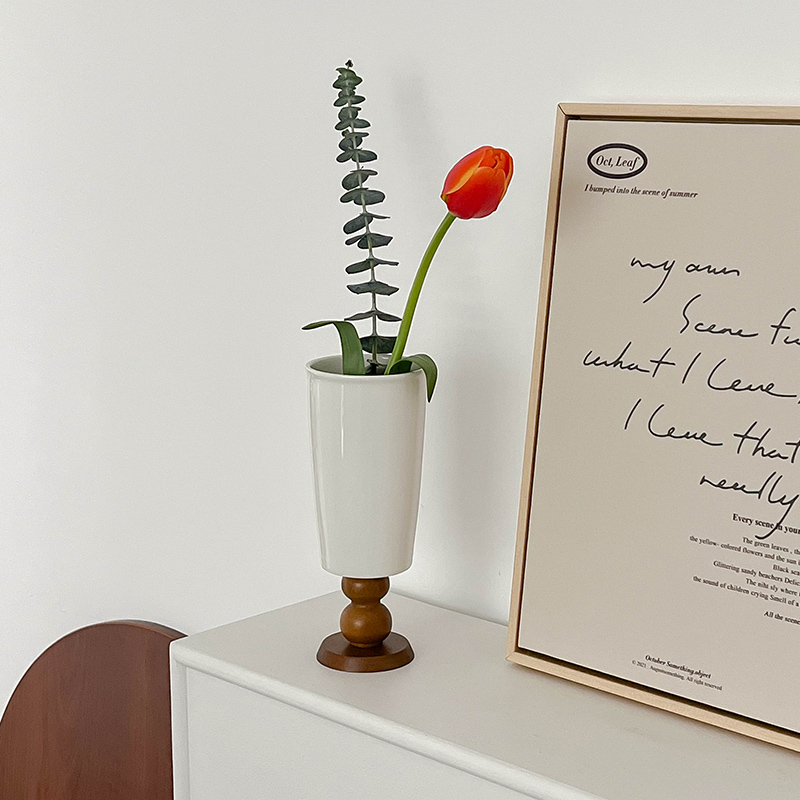 Oct, Leaf
I bumped into the scene of summer
my own
Scene
what I love,
I love that
really
Every scene in your
The green leaves , th
the yellow- colored flowers and the sun
Black
Glittering sandy benchers
The niht sly where
the sound of children crying Smell of a
All the scene
October Something.object
© 2021 . Augustsomething. All right reserved